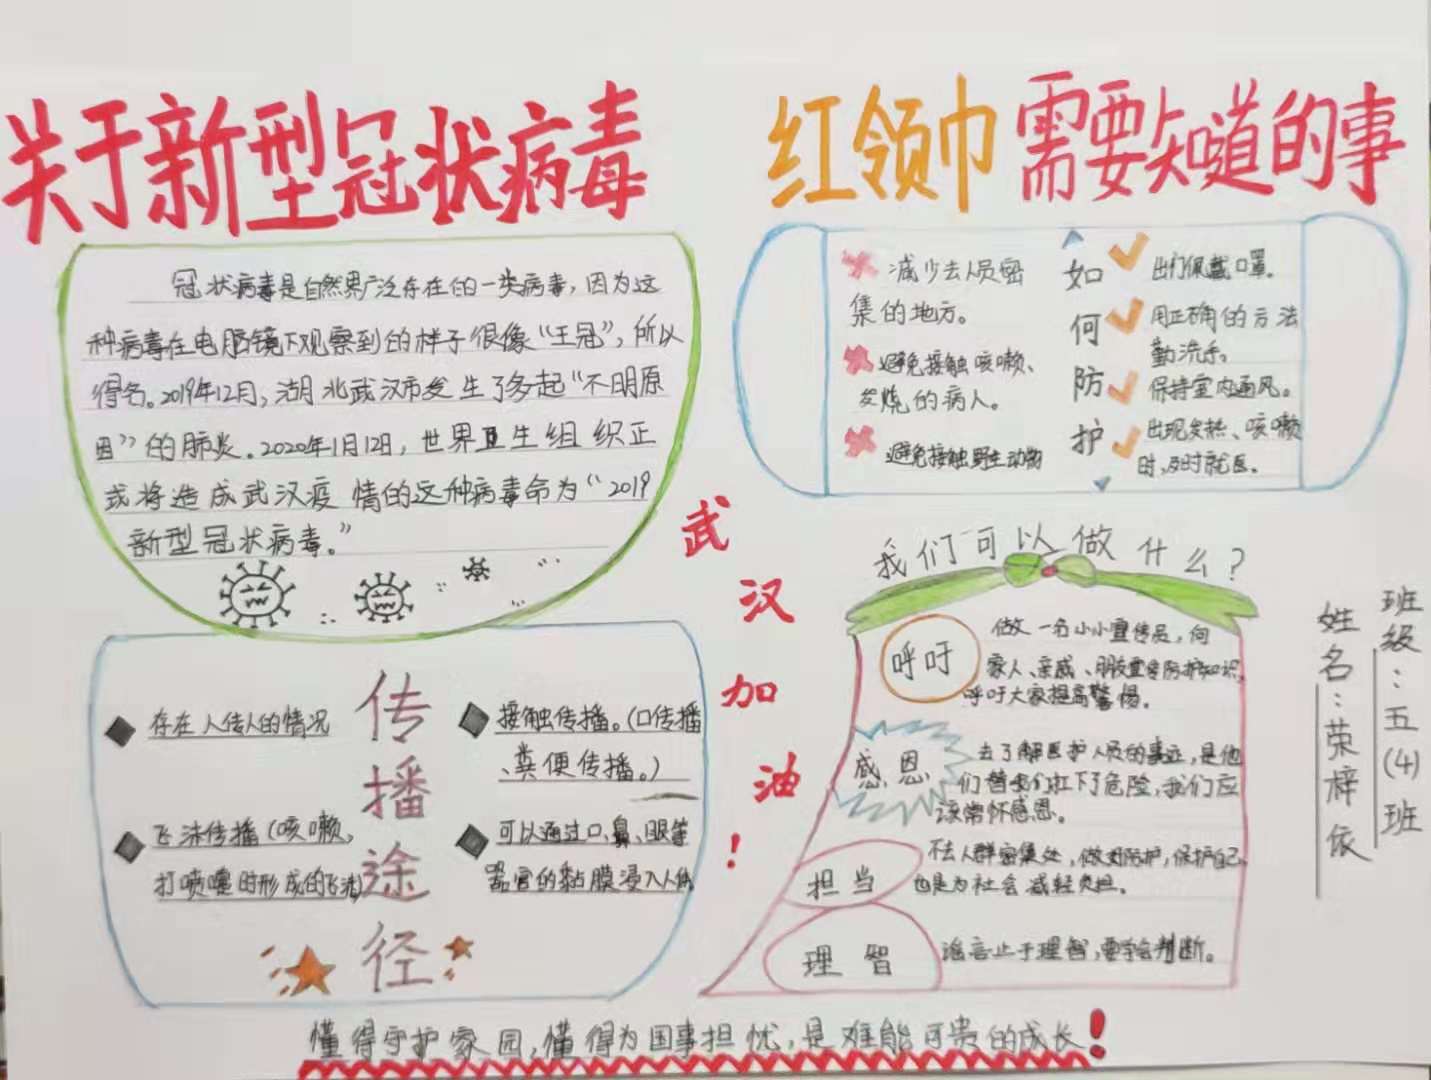 关于新型冠状病毒
红领巾需要知道的事
冠状病毒是自然界广泛存在的一类病毒，因为这
种病毒在电脑镜下观察到的样子很像“王冠”，所以
得名。2019年12月，湖北武汉市发生了多起“不明原
因”的肺炎。2020年1月12日，世界卫生组织正
式将造成武汉疫情的这种病毒命为“2019
新型冠状病毒。”
传播途径
存在人传人的情况
飞沫传播（咳嗽、
打喷嚏时形成的飞沫）
接触传播。（口传播
、粪便传播。）
可以通过口、鼻、眼等
器官的黏膜浸入人体
武汉加油！
减少去人员密
集的地方。
避免接触咳嗽、
发烧的病人。
避免接触野生动物
如何防护
出门佩戴口罩。
用正确的方法
勤洗手。
保持室内通风。
出现发热、咳嗽
时，及时就医。
我们可以做什么？
呼吁
做一名小小宣传员，向
家人、亲戚、朋友宣传防护知识，
呼吁大家提高警惕。
感恩
去了解医护人员的事迹，是他
们替我们扛下了危险，我们应
该常怀感恩。
担当
不去人群密集处，做好防护，保护自己
也是为社会减轻负担。
理智
谣言止于理智，要学会判断。
班级：五（4）班
姓名：荣梓依
懂得守护家园，懂得为国事担忧，是难能可贵的成长！